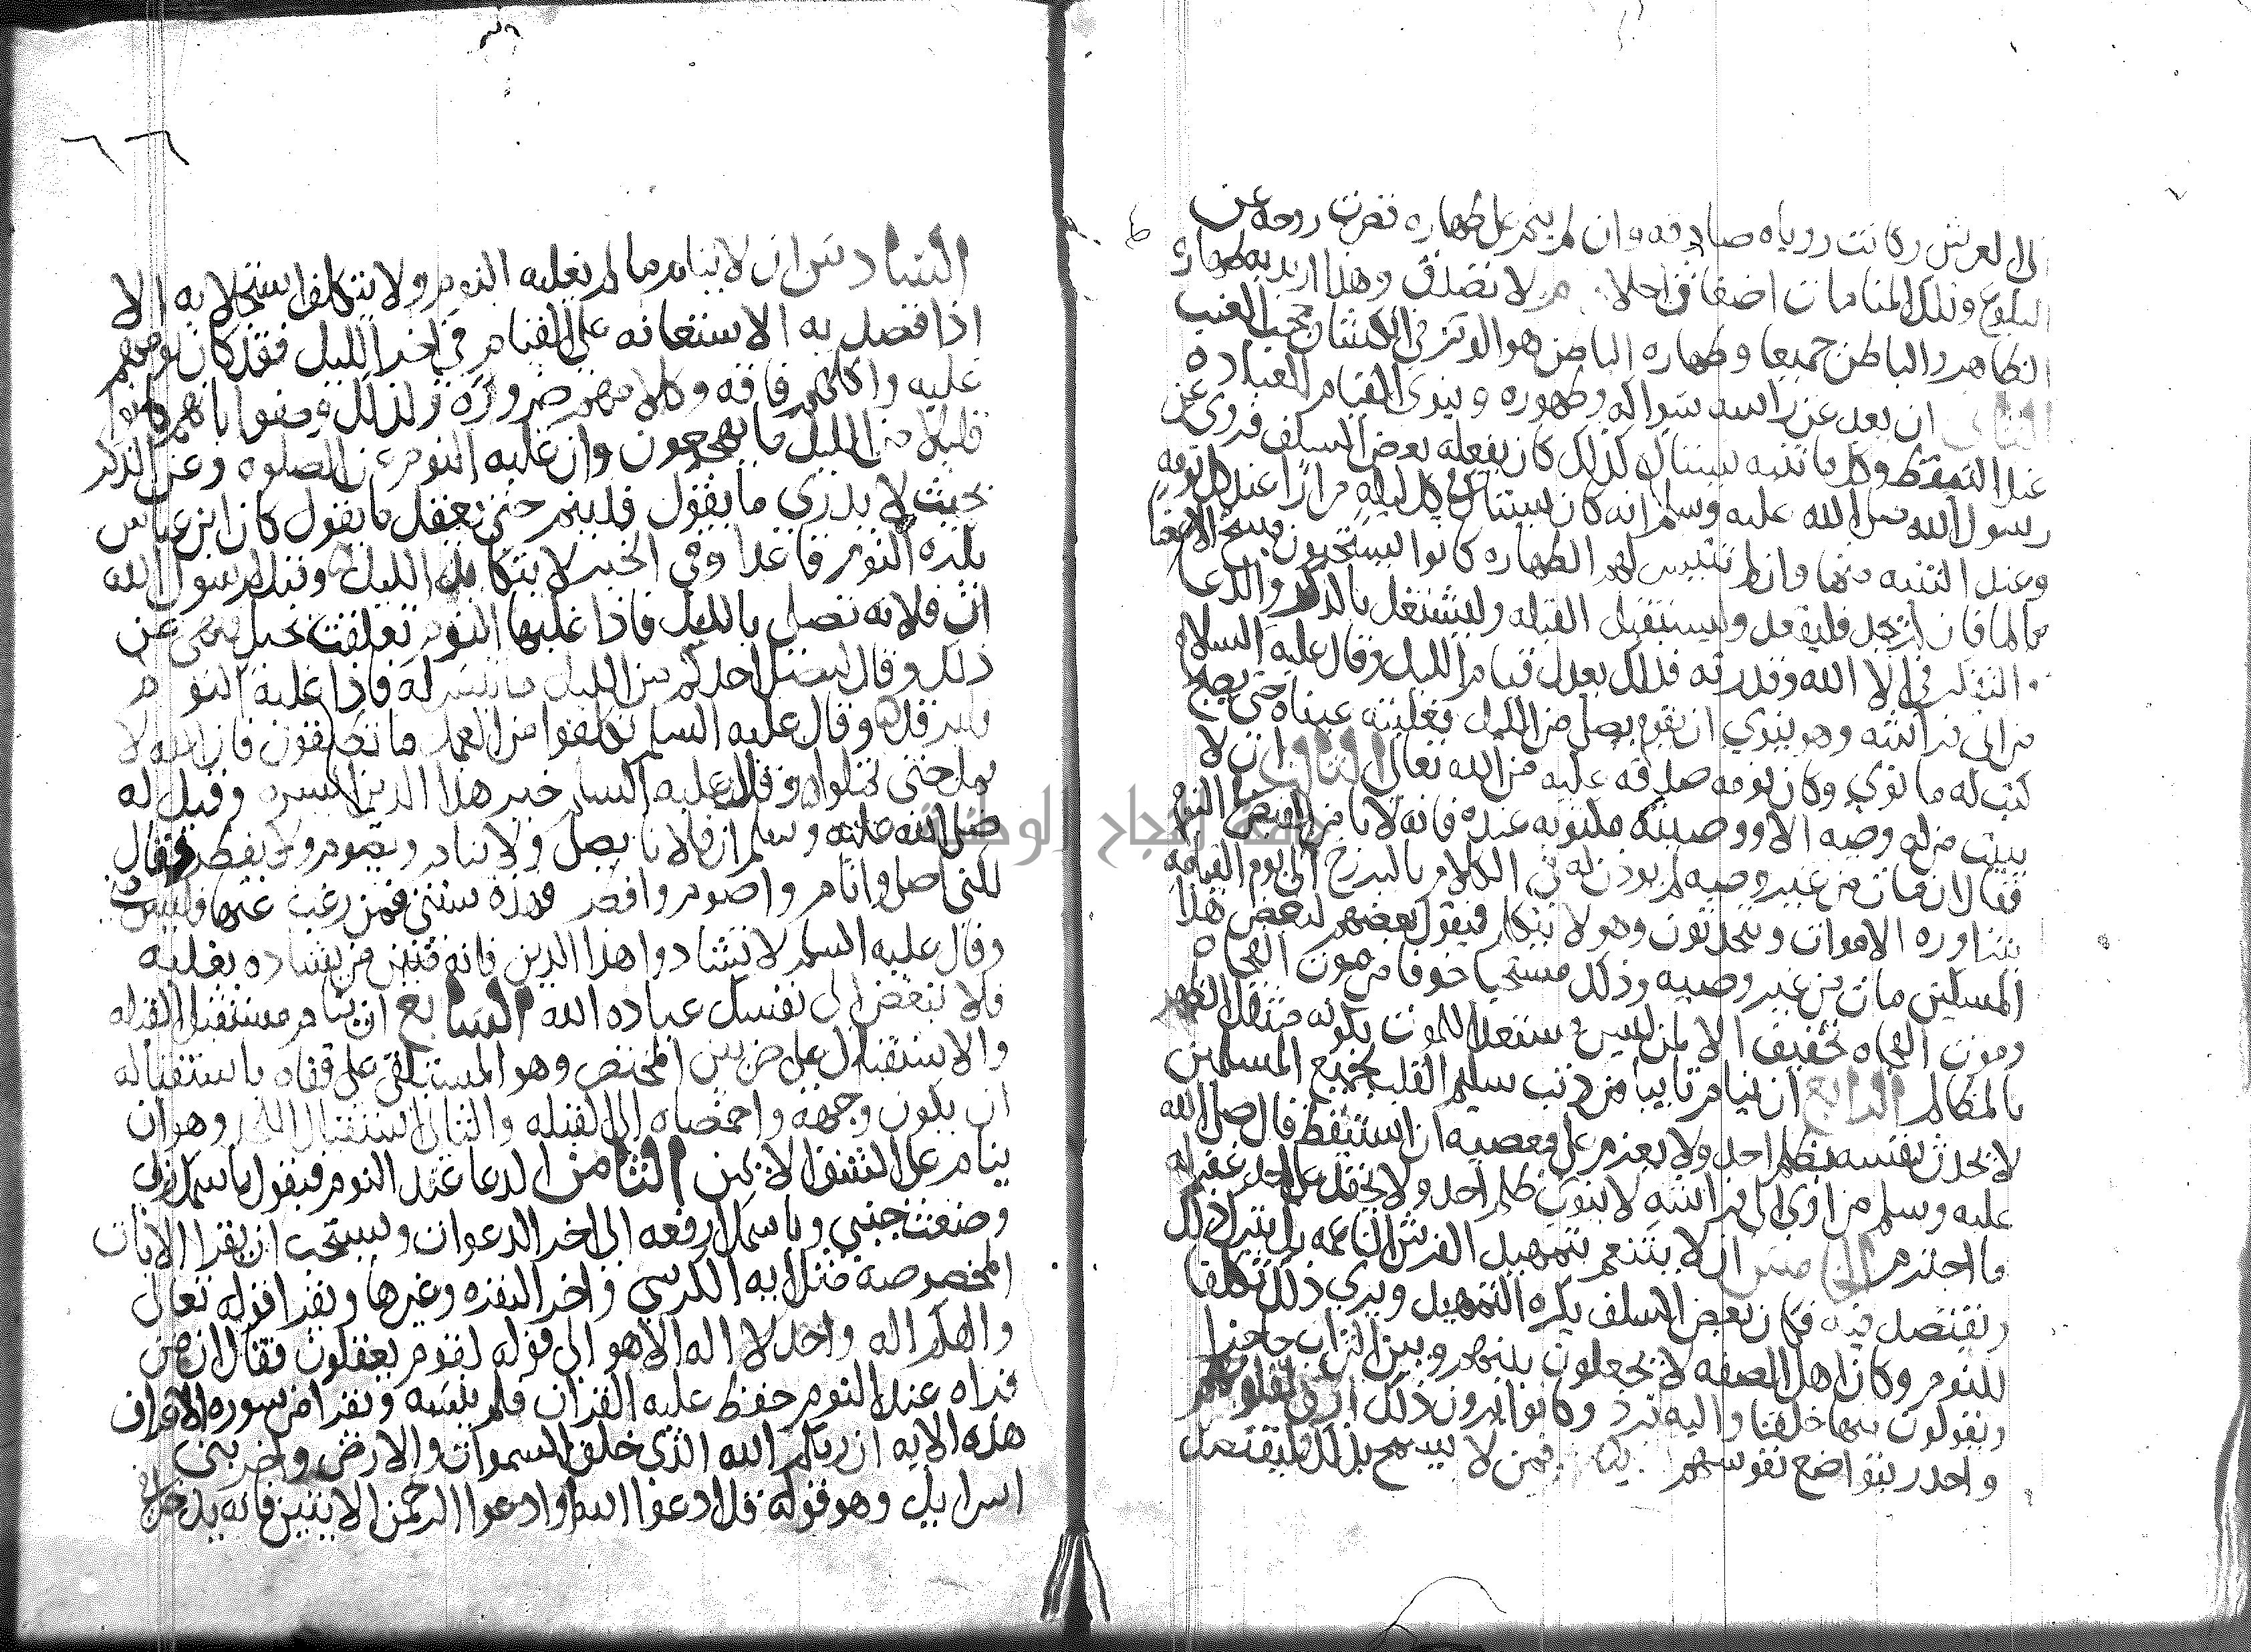 الى العرش وكانت روياه صادقه وان لم ينم على طهاره قصرت روحه عن
البلوغ وتلك المنامات اضغاث احلام لا تصدق وهذا اريد به طهارة
الظاهر والباطن جميعا وطهاره الباطن هو الموثر في انكشاف حجب الغيب
الثاني ان يعد عند راسه سواكه وطهوره وينوي القيام للعباده
عند التيقظ وكل ما تنبه يستاك كذلك كان يفعله بعض السلف وروى عن
رسول الله صلى الله عليه وسلم انه كان يستاك في كل ليله مرارا عند كل نومه
وعند التنبه منها وان لم تتيسر لهم الطهاره كانوا يستحبون مسح الاعضا
بالما فان لم يجد فليقعد وليستقبل القبله وليشتغل بالذكر والدعا
والتفكر في الا الله وقدرته فذلك يعدل قيام الليل وقال عليه السلام
من اتى فراشه وهو ينوي ان يقوم يصلي من الليل فغلبته عيناه حتى يصبح
كتب له ما نوى وكان نومه صدقه عليه من الله تعالى الثالث ان لا
يبيت من له وصيه الا ووصيته مكتوبه عنده فانه لا يامن القبض في النوم
فقال ان مات من غير وصيه لم يوذن له في الكلام بالبرزخ الى يوم القيامه
يتزاوره الاموات ويتحدثون وهو لا يتكلم فيقول بعضهم لبعض هذا
المسكين مات من غير وصيه وذلك مستحبا خوفا من موت الفجاه
وموت الفجاه تخفيف الا لمن ليس مستعدا للموت بكونه مثقل الظهر
بالمظالم الرابع ان ينام تايبا من كل ذنب سليم القلب لجميع المسلمين
لا يحدث نفسه بظلم احد ولا يعزم على معصيه ان استيقظ قال صلى الله
عليه وسلم من اوى الى فراشه لا ينوي ظلم احد ولا يحقد على احد غفر له
ما اجترم الخامس ان لا يتنعم بتمهيد الفرش الناعمه بل يترك ذلك
ويقتصد فيه فكان بعض السلف يكره التمهيد ويرى ذلك تكلفا
للنوم وكان اهل الصفه لا يجعلون بينهم وبين التراب حاجزا
ويقولون منها خلقنا واليه نرد وكانوا يرون ذلك ارق لقلوبهم
واجدر بتواضع نفوسهم فمن لا يسمح بذلك فليقتصد
٦٦
السادس ان لا ينام ما لم يغلبه النوم ولا يتكلف استجلابه الا
اذا قصد به الاستعانه على القيام في اخر الليل فقد كان نومهم
غلبه واكلهم فاقه وكلامهم ضروره ولذلك وصفوا بانهم كانوا
قليلا من الليل ما يهجعون وان غلبه النوم عن الصلوه وعن الذكر
بحيث لا يدري ما يقول فلينم حتى يعقل ما يقول كان ابن عباس
يكره النوم قاعدا وفي الخبر لا تتكابدوا الليل وقيل لرسول الله
ان فلانه تصلي بالليل فاذا غلبها النوم تعلقت بحبل فنهى عن
ذلك وقال ليصل احدكم من الليل ما تيسر له فاذا غلبه النوم
فليرقد وقال عليه السلم تكلفوا من العمل ما تطيقون فان الله لا
يمل حتى تملوا وقال عليه السلم خير هذا الدين ايسره وقيل له
صلى الله عليه وسلم ان فلانا يصلي ولا ينام ويصوم ولا يفطر فقال
لكني اصلي وانام واصوم وافطر هذه سنتي فمن رغب عنها فليس مني
وقال عليه السلم لا تشادوا هذا الدين فانه متين فمن يشاده يغلبه
فلا تبغض الى نفسك عباده الله السابع ان ينام مستقبل القبله
والاستقبال على ضربين المحتضر وهو المستلقي على قفاه باستقباله
ان يكون وجهه واخمصاه الى القبله والثاني استقبال اللحد وهو ان
ينام على الشق الايمن الثامن الدعا عند النوم فيقول باسمك ربي
وضعت جنبي وباسمك ارفعه الى اخر الدعوات ويستحب ان يقرا الايات
المخصوصه مثل ايه الكرسي واخر البقره وغيرها ويقرا قوله تعالى
والهكم اله واحد لا اله الا هو الى قوله لقوم يعقلون فقال ان من
قراه عند النوم حفظ عليه القران فلم ينسه ويقرا من سوره الاعراف
هذه الايه ان ربكم الله الذي خلق السموات والارض واخر بني
اسرايل وهو قوله قل ادعوا الله او ادعوا الرحمن الايتين فانه يدخل في